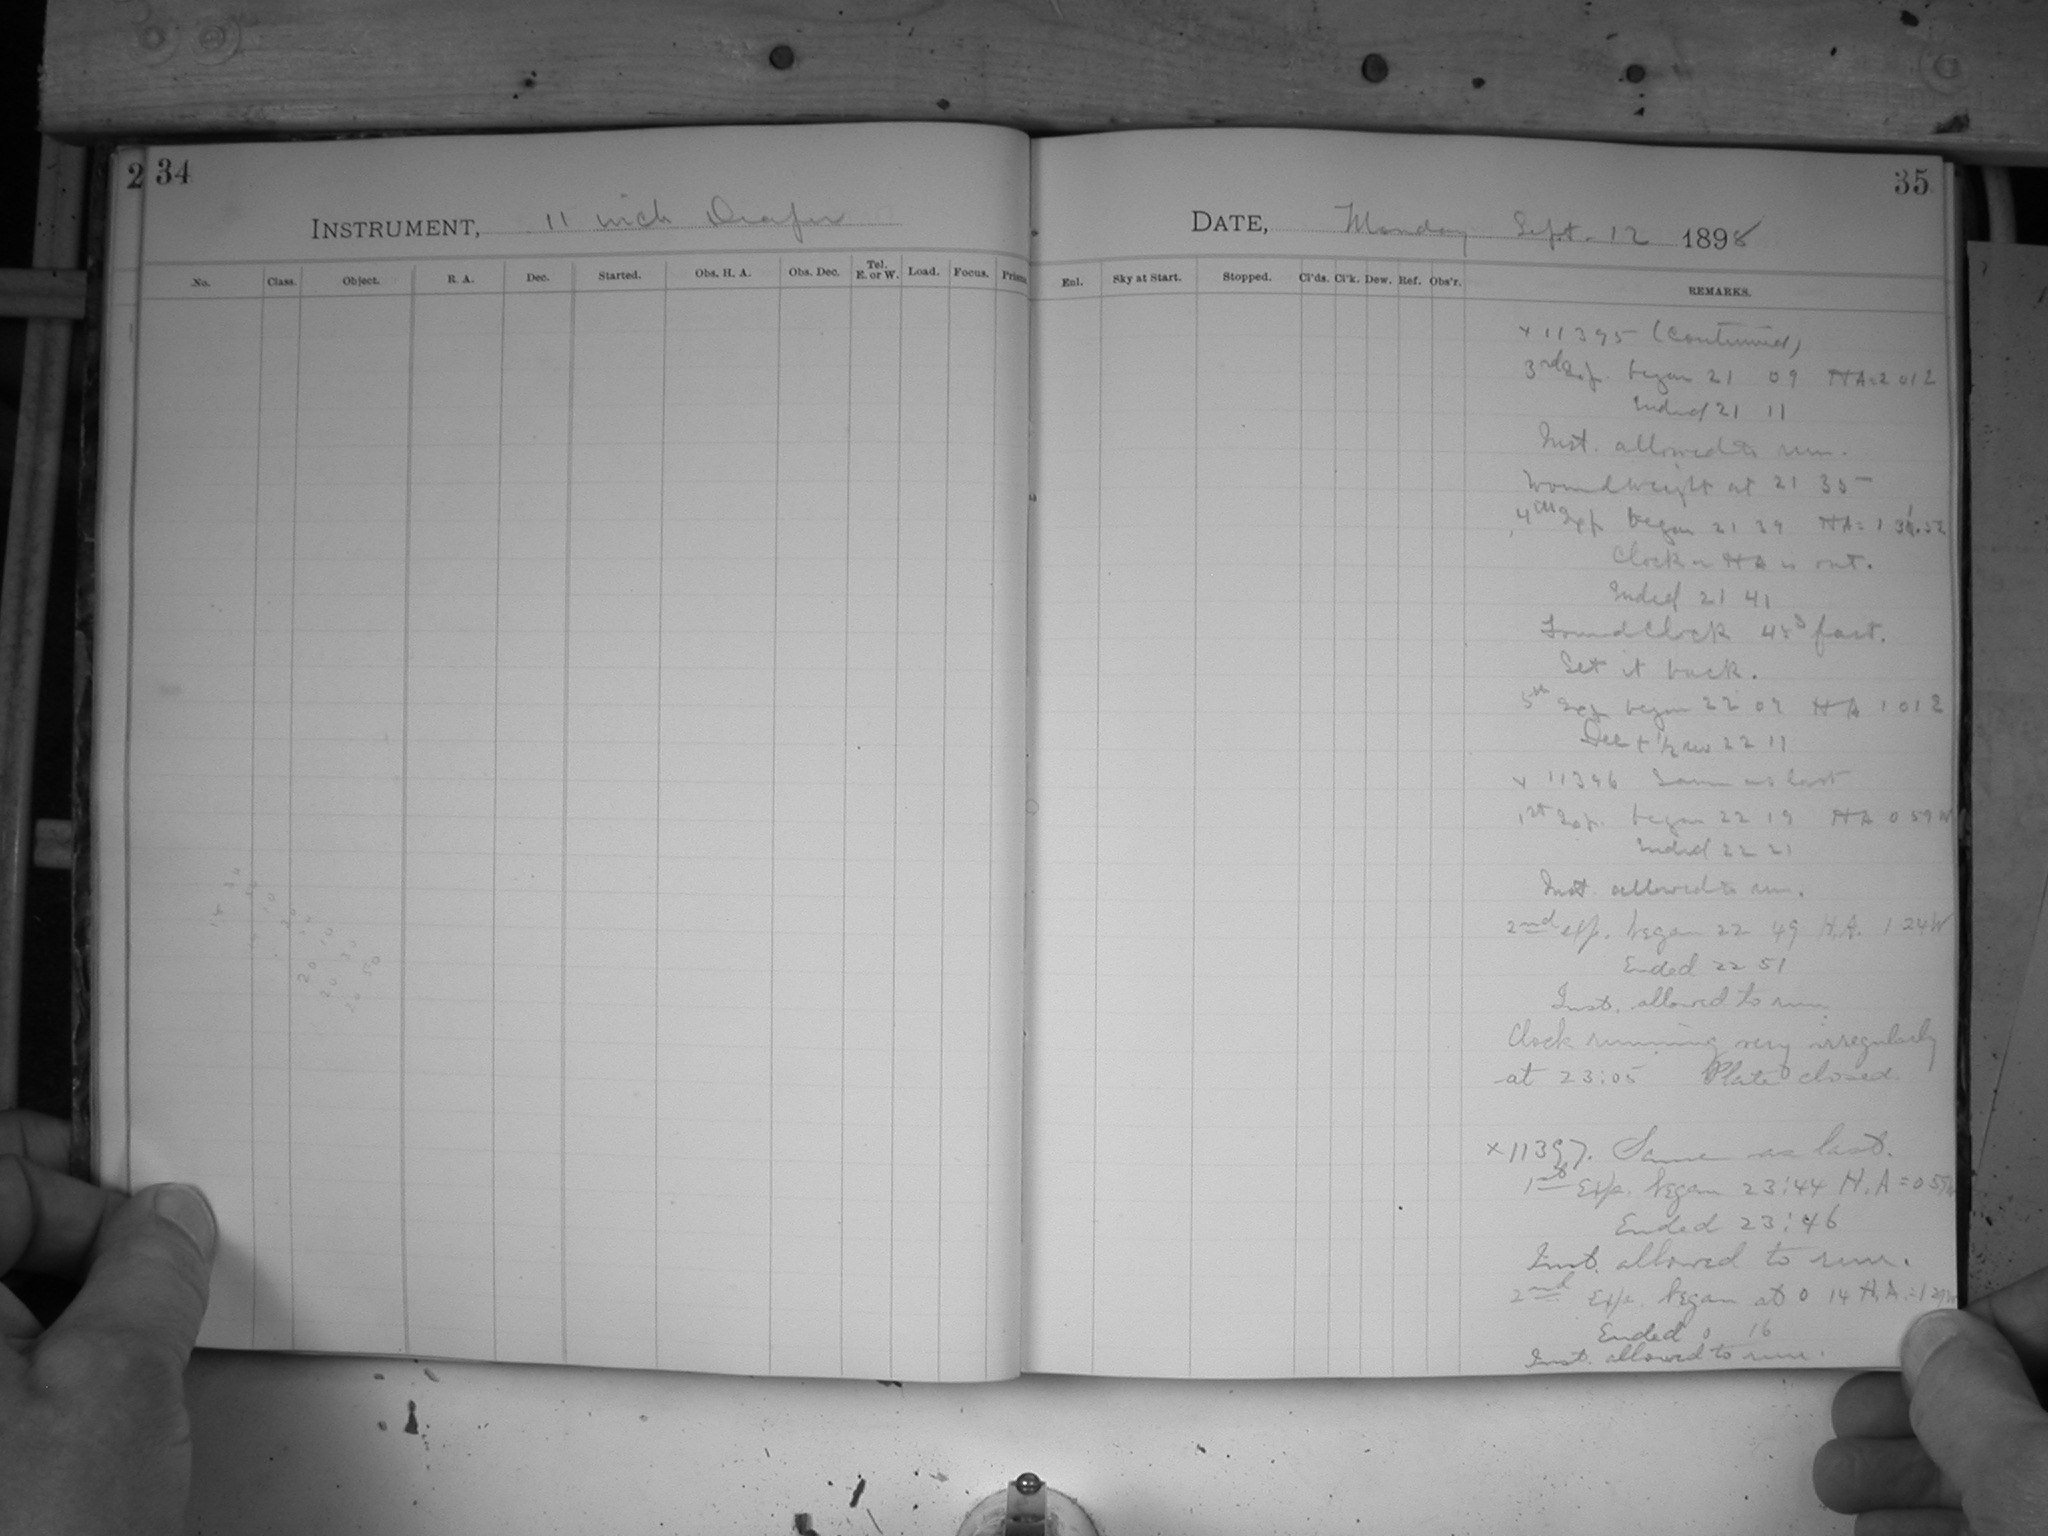 2 34
35
INSTRUMENT, 11 inch Draper
DATE, Monday Sept. 12 1898
No. Class. Object. R. A. Dec. Started. Obs. H. A. Obs. Dec. Tel. E. or W. Load. Focus. Prisms
Enl. Sky at Start. Stopped. Cl'ds. Cl'k. Dew. Ref. Obs'r. REMARKS.
x 11395 (Continued)
3rd Exp. began 21 09 HA=2 012
Ended 21 11
Inst. allowed to run.
Wound weight at 21 35
4th Exp. began 21 39 HA= 1
Clock or HA is out.
Ended 21 41
Found Clock 45s fast.
Set it back.
5th Exp began 22 09 HA 1 012
Dec + 1/2 rev 22 11
x 11396 Same as last
1st Exp. began 22 19 HA 0 59 W
Ended 22 21
Inst. allowed to run.
2nd exp. began 22 49 H.A. 1 24 W
Ended 22 51
Inst. allowed to run
Clock running very irregularly
at 23:05 Plate closed.
x 11397. Same as last.
1st Exp. began 23:44 H.A = 0 59
Ended 23:46
Inst. allowed to run.
2nd Exp. began at 0 14 H.A. = 1 29 W
Ended 0 16
Inst. allowed to run.